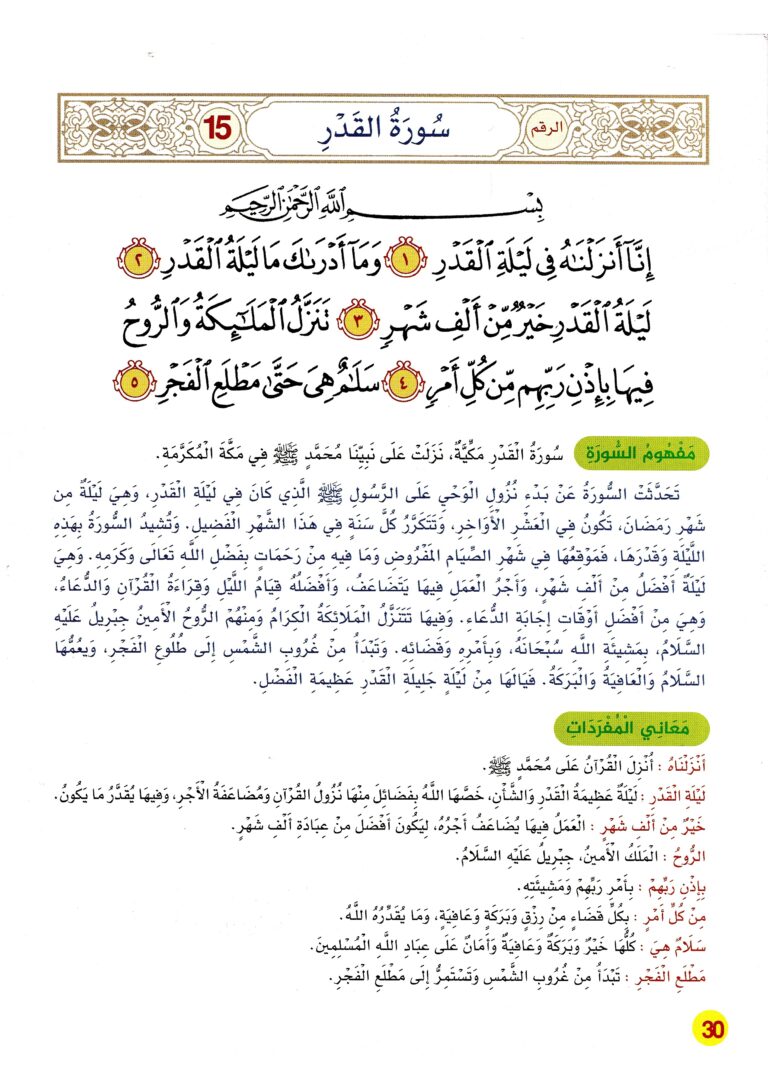 الرقم سُورَةُ القَدْرِ 15
بِسْمِ اللَّهِ الرَّحْمَٰنِ الرَّحِيمِ
إِنَّآ أَنزَلْنَٰهُ فِى لَيْلَةِ ٱلْقَدْرِ ١ وَمَآ أَدْرَىٰكَ مَا لَيْلَةُ ٱلْقَدْرِ ٢
لَيْلَةُ ٱلْقَدْرِ خَيْرٌ مِّنْ أَلْفِ شَهْرٍ ٣ تَنَزَّلُ ٱلْمَلَٰٓئِكَةُ وَٱلرُّوحُ
فِيهَا بِإِذْنِ رَبِّهِم مِّن كُلِّ أَمْرٍ ٤ سَلَٰمٌ هِىَ حَتَّىٰ مَطْلَعِ ٱلْفَجْرِ ٥
مَفْهُومُ السُّورَةِ سُورَةُ القَدْرِ مَكِّيَّةٌ، نَزَلَتْ عَلَى نَبِيِّنَا مُحَمَّدٍ ﷺ فِي مَكَّةَ الْمُكَرَّمَةِ.
تَحَدَّثَتْ السُّورَةُ عَنْ بَدْءِ نُزُولِ الْوَحْيِ عَلَى الرَّسُولِ ﷺ الَّذِي كَانَ فِي لَيْلَةِ الْقَدْرِ، وَهِيَ لَيْلَةٌ مِن
شَهْرِ رَمَضَانَ، تَكُونُ فِي الْعَشْرِ الْأَوَاخِرِ، وَتَتَكَرَّرُ كُلَّ سَنَةٍ فِي هَذَا الشَّهْرِ الْفَضِيلِ. وَتُشِيدُ السُّورَةُ بِهَذِهِ
اللَّيْلَةِ وَقَدْرِهَا، فَمَوْقِعُهَا فِي شَهْرِ الصِّيَامِ الْمَفْرُوضِ وَمَا فِيهِ مِنْ رَحَمَاتٍ بِفَضْلِ اللَّهِ تَعَالَى وَكَرَمِهِ. وَهِيَ
لَيْلَةٌ أَفْضَلُ مِنْ أَلْفِ شَهْرٍ، وَأَجْرُ الْعَمَلِ فِيهَا يَتَضَاعَفُ، وَأَفْضَلُهُ قِيَامُ اللَّيْلِ وَقِرَاءَةُ الْقُرْآنِ وَالدُّعَاءُ،
وَهِيَ مِنْ أَفْضَلِ أَوْقَاتِ إِجَابَةِ الدُّعَاءِ. وَفِيهَا تَتَنَزَّلُ الْمَلَائِكَةُ الْكِرَامُ وَمِنْهُمْ الرُّوحُ الْأَمِينُ جِبْرِيلُ عَلَيْهِ
السَّلَامُ، بِمَشِيئَةِ اللَّهِ سُبْحَانَهُ، وَبِأَمْرِهِ وَقَضَائِهِ. وَتَبْدَأُ مِنْ غُرُوبِ الشَّمْسِ إِلَى طُلُوعِ الْفَجْرِ، وَيَعُمُّهَا
السَّلَامُ وَالْعَافِيَةُ وَالْبَرَكَةُ. فَيَالَهَا مِنْ لَيْلَةٍ جَلِيلَةِ الْقَدْرِ عَظِيمَةِ الْفَضْلِ.
مَعَانِي الْمُفْرَدَاتِ
أَنْزَلْنَاهُ : أُنْزِلَ الْقُرْآنُ عَلَى مُحَمَّدٍ ﷺ.
لَيْلَةِ الْقَدْرِ : لَيْلَةٌ عَظِيمَةُ الْقَدْرِ وَالشَّأْنِ، خَصَّهَا اللَّهُ بِفَضَائِلَ مِنْهَا نُزُولُ الْقُرْآنِ وَمُضَاعَفَةُ الْأَجْرِ، وَفِيهَا يُقَدَّرُ مَا يَكُونُ.
خَيْرٌ مِنْ أَلْفِ شَهْرٍ : الْعَمَلُ فِيهَا يُضَاعَفُ أَجْرُهُ، لِيَكُونَ أَفْضَلَ مِنْ عِبَادَةِ أَلْفِ شَهْرٍ.
الرُّوحُ : الْمَلَكُ الْأَمِينُ، جِبْرِيلُ عَلَيْهِ السَّلَامُ.
بِإِذْنِ رَبِّهِمْ : بِأَمْرِ رَبِّهِمْ وَمَشِيئَتِهِ.
مِنْ كُلِّ أَمْرٍ : بِكُلِّ قَضَاءٍ مِنْ رِزْقٍ وَبَرَكَةٍ وَعَافِيَةٍ، وَمَا يُقَدِّرُهُ اللَّهُ.
سَلَامٌ هِيَ : كُلُّهَا خَيْرٌ وَبَرَكَةٌ وَعَافِيَةٌ وَأَمَانٌ عَلَى عِبَادِ اللَّهِ الْمُسْلِمِينَ.
مَطْلَعِ الْفَجْرِ : تَبْدَأُ مِنْ غُرُوبِ الشَّمْسِ وَتَسْتَمِرُّ إِلَى مَطْلَعِ الْفَجْرِ.
30